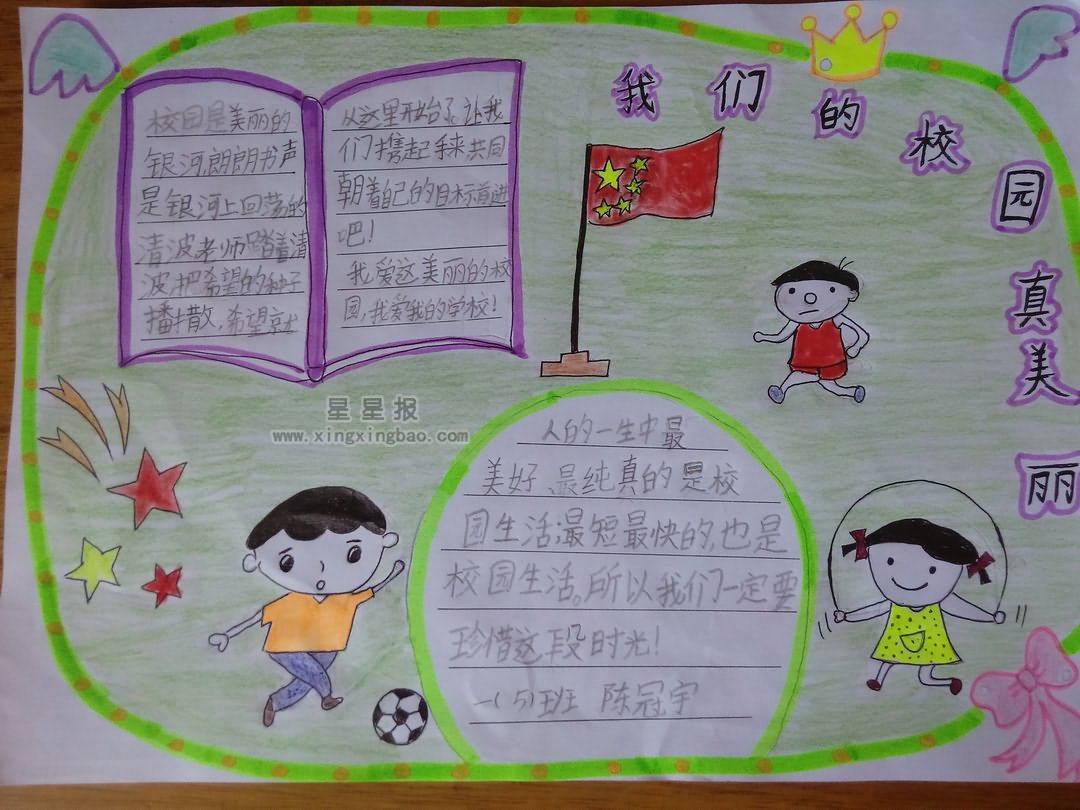 我们的校园真美丽
校园是美丽的
银河,朗朗书声
是银河上回荡的
清波老师踏着清
波把希望的种子
播散,希望就
从这里开始了,让我
们携起手来共同
朝着自己的目标前进
吧!
我爱这美丽的校
园,我爱我的学校!
星星报
www.xingxingbao.com
人的一生中最
美好、最纯真的是校
园生活,最短最快的,也是
校园生活。所以我们一定要
珍惜这段时光!
一(5)班 陈冠宇